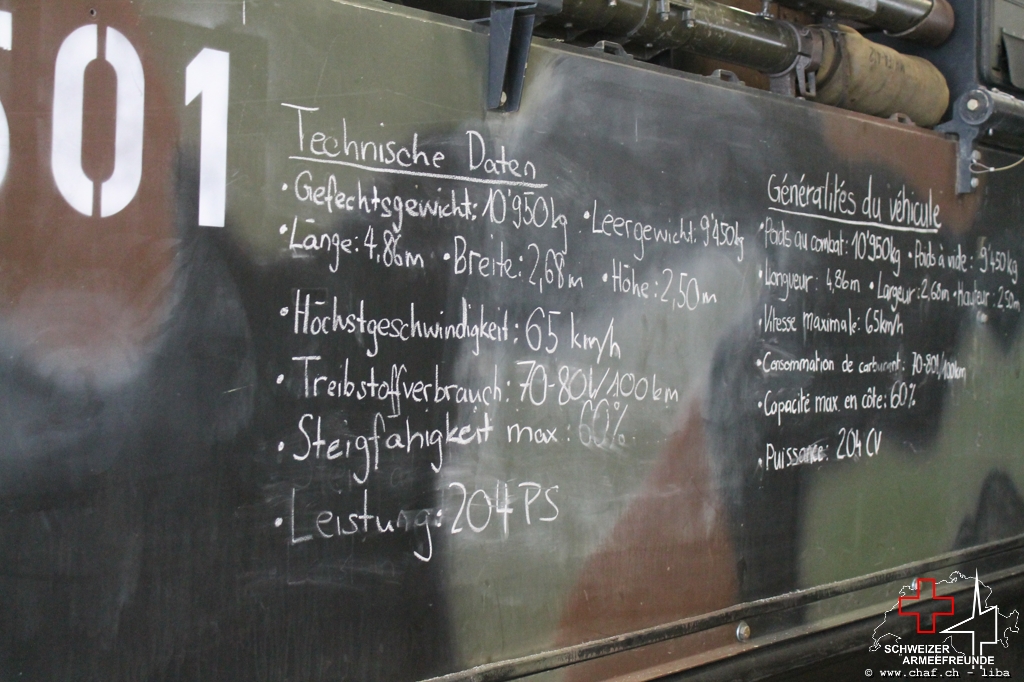 501
Technische Daten
• Gefechtsgewicht: 10'950 kg • Leergewicht: 9'450 kg
• Länge: 4,86m • Breite: 2,68m • Höhe: 2,50m
• Höchstgeschwindigkeit: 65 km/h
• Treibstoffverbrauch: 70-80l/100km
• Steigfähigkeit max: 60%
• Leistung: 204 PS
Généralités du véhicule
• Poids au combat: 10'950kg • Poids à vide: 9'450 kg
• Longueur: 4,86m • Largeur: 2,68m • Hauteur: 2,50m
• Vitesse maximale: 65km/h
• Consommation de carburant: 70-80l/100km
• Capacité max. en côte: 60%
• Puissance: 204 CV
SCHWEIZER
ARMEEFREUNDE
© www.chaf.ch - liba